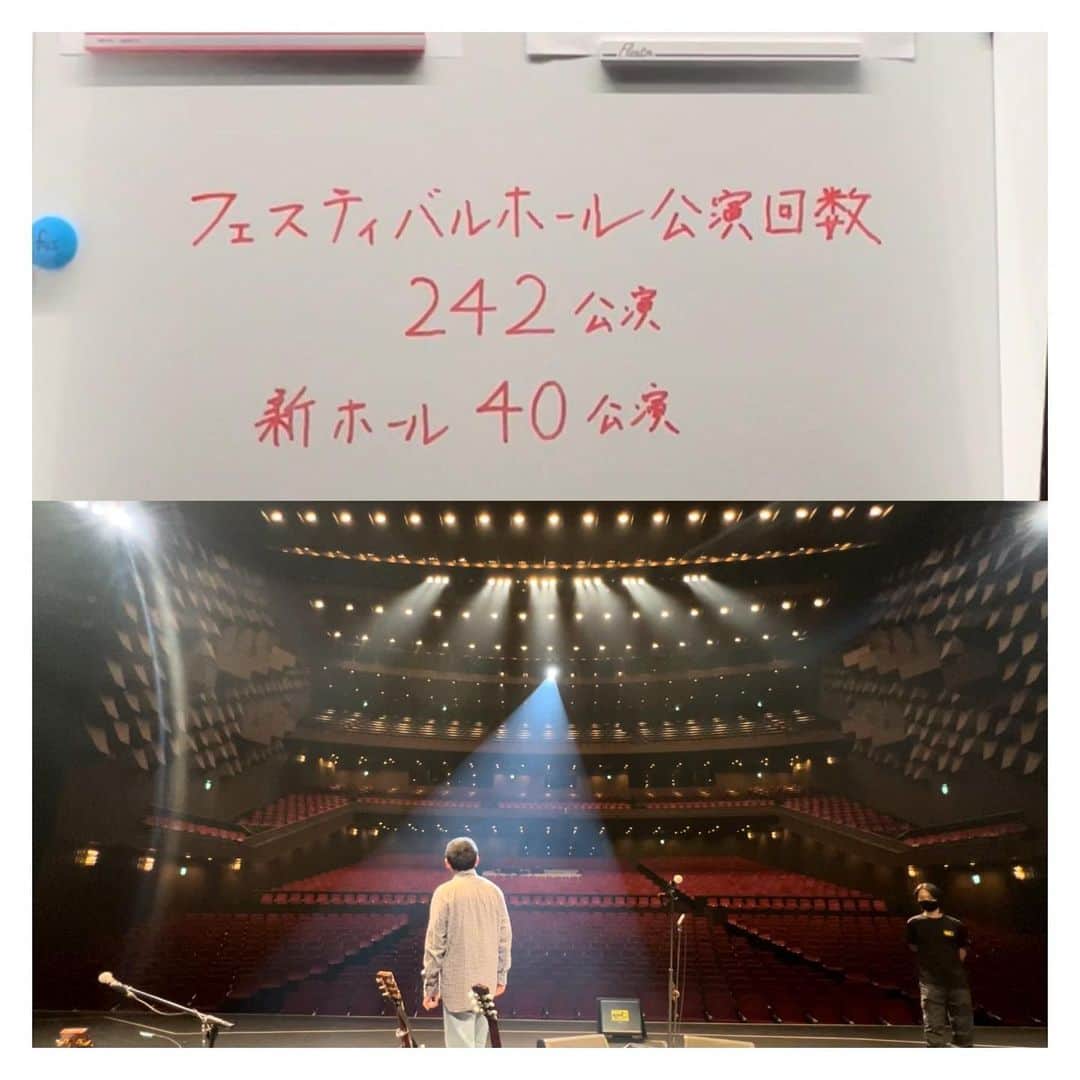 フェスティバルホール公演回数
242公演
新ホール 40公演